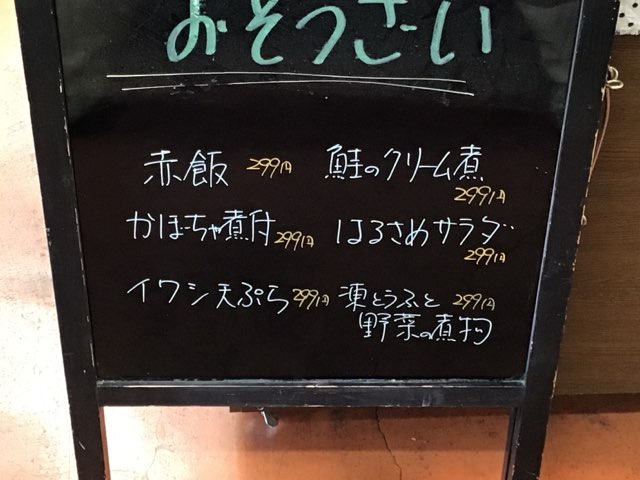 おそうざい
赤飯 299円
鮭のクリーム煮 299円
かぼちゃ煮付 299円
はるさめサラダ 299円
イワシ天ぷら 299円
凍とうふと 299円
野菜の煮物